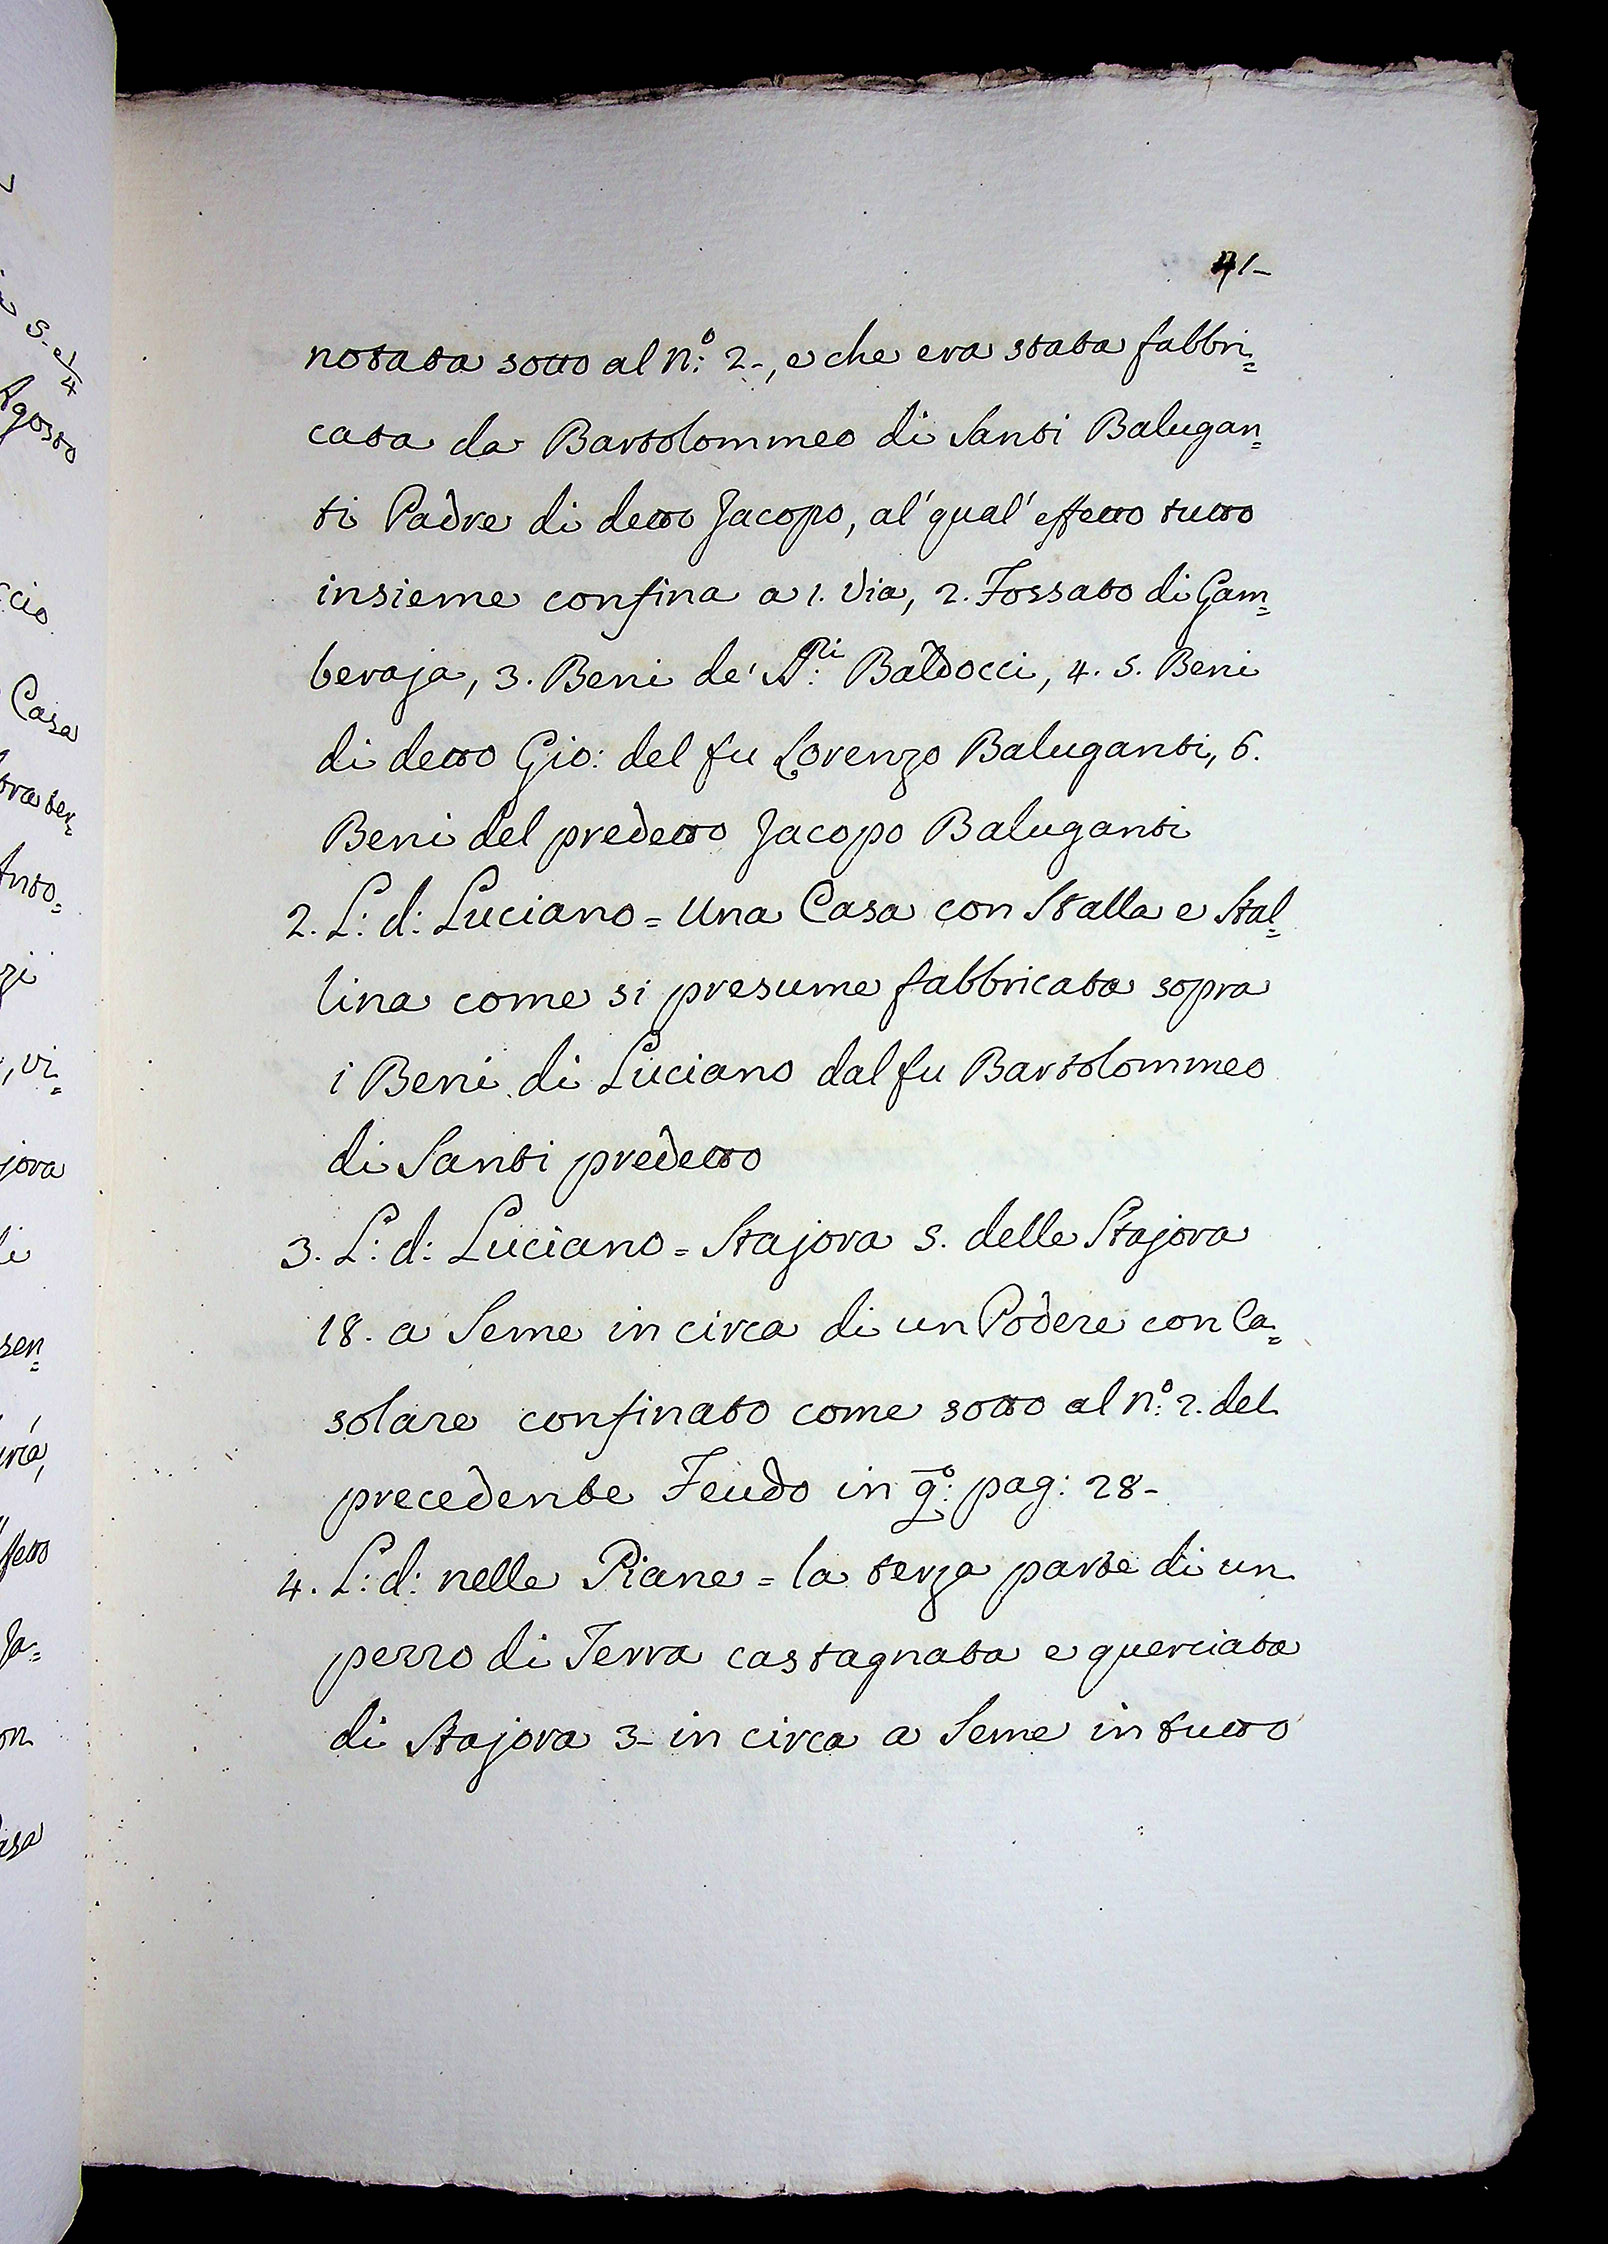 41-
notata sotto al n:º 2-, e che era stata fabbri=
cata da Bartolommeo di Santi Balugan=
ti Padre di detto Jacopo, al' qual' effetto tutto
insieme confina a 1. Via, 2. Fossato di Gam=
beraja, 3. Beni de' S:ri Baldocci, 4. 5. Beni
di detto Gio: del fu Lorenzo Baluganti, 6.
Beni del predetto Jacopo Baluganti
2. L: d: Luciano = Una Casa con Stalla e Stal=
lina come si presume fabbricata sopra
i Beni di Luciano dal fu Bartolommeo
di Santi predetto
3. L: d: Luciano = Stajora 5. delle Stajora
18. a Seme in circa di un Podere con Ca=
solare confinato come sotto al n:º 2. del
precedente Feudo in q:º pag: 28-
4. L: d: nelle Piane = la terza parte di un
pezzo di Terra castagnata e querciata
di Stajora 3- in circa a Seme in tutto